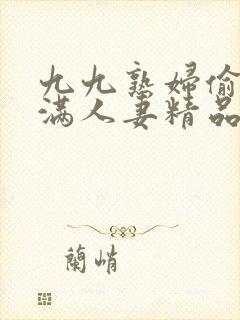 九九熟婦偷
满人妻精品
蘭峭